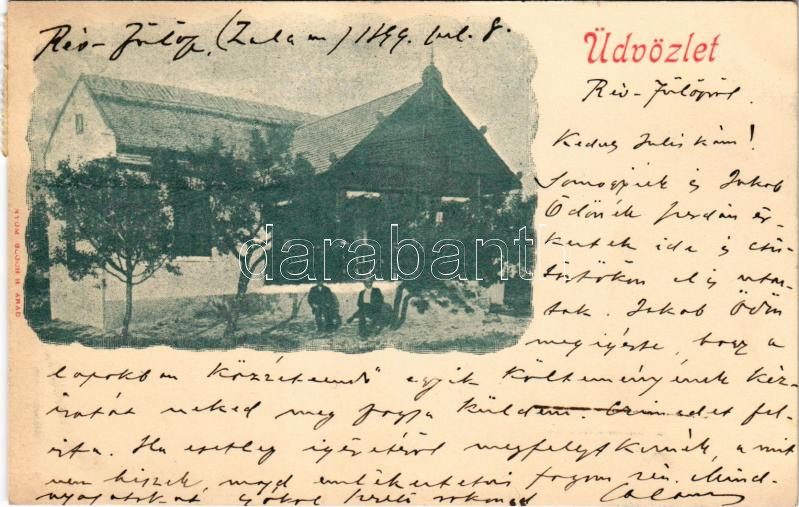 Rév-Fülöp, (Zala m) 1899 jul. 8.
Üdvözlet
Rév-Fülöpről
Kedves Juliskám!
Somogyiék és Jakab
Ödönék szerdán ér-
keztek ide és csü-
törtökön el is utaz-
tak. Jakab Ödön
megigérte, hogy a
lapokban közzéteendő egyik költeményének kéz-
iratát neked meg fogja küldeni. Czimedet fel-
irta. Ha esetleg igéretéről megfelejtkeznék, a mit
nem hiszek, majd emlékeztetni fogom rá. Mind-
nyájatokat csókol szerető rokonod
NYOM. BLOCH H. ARAD
darabanth.com